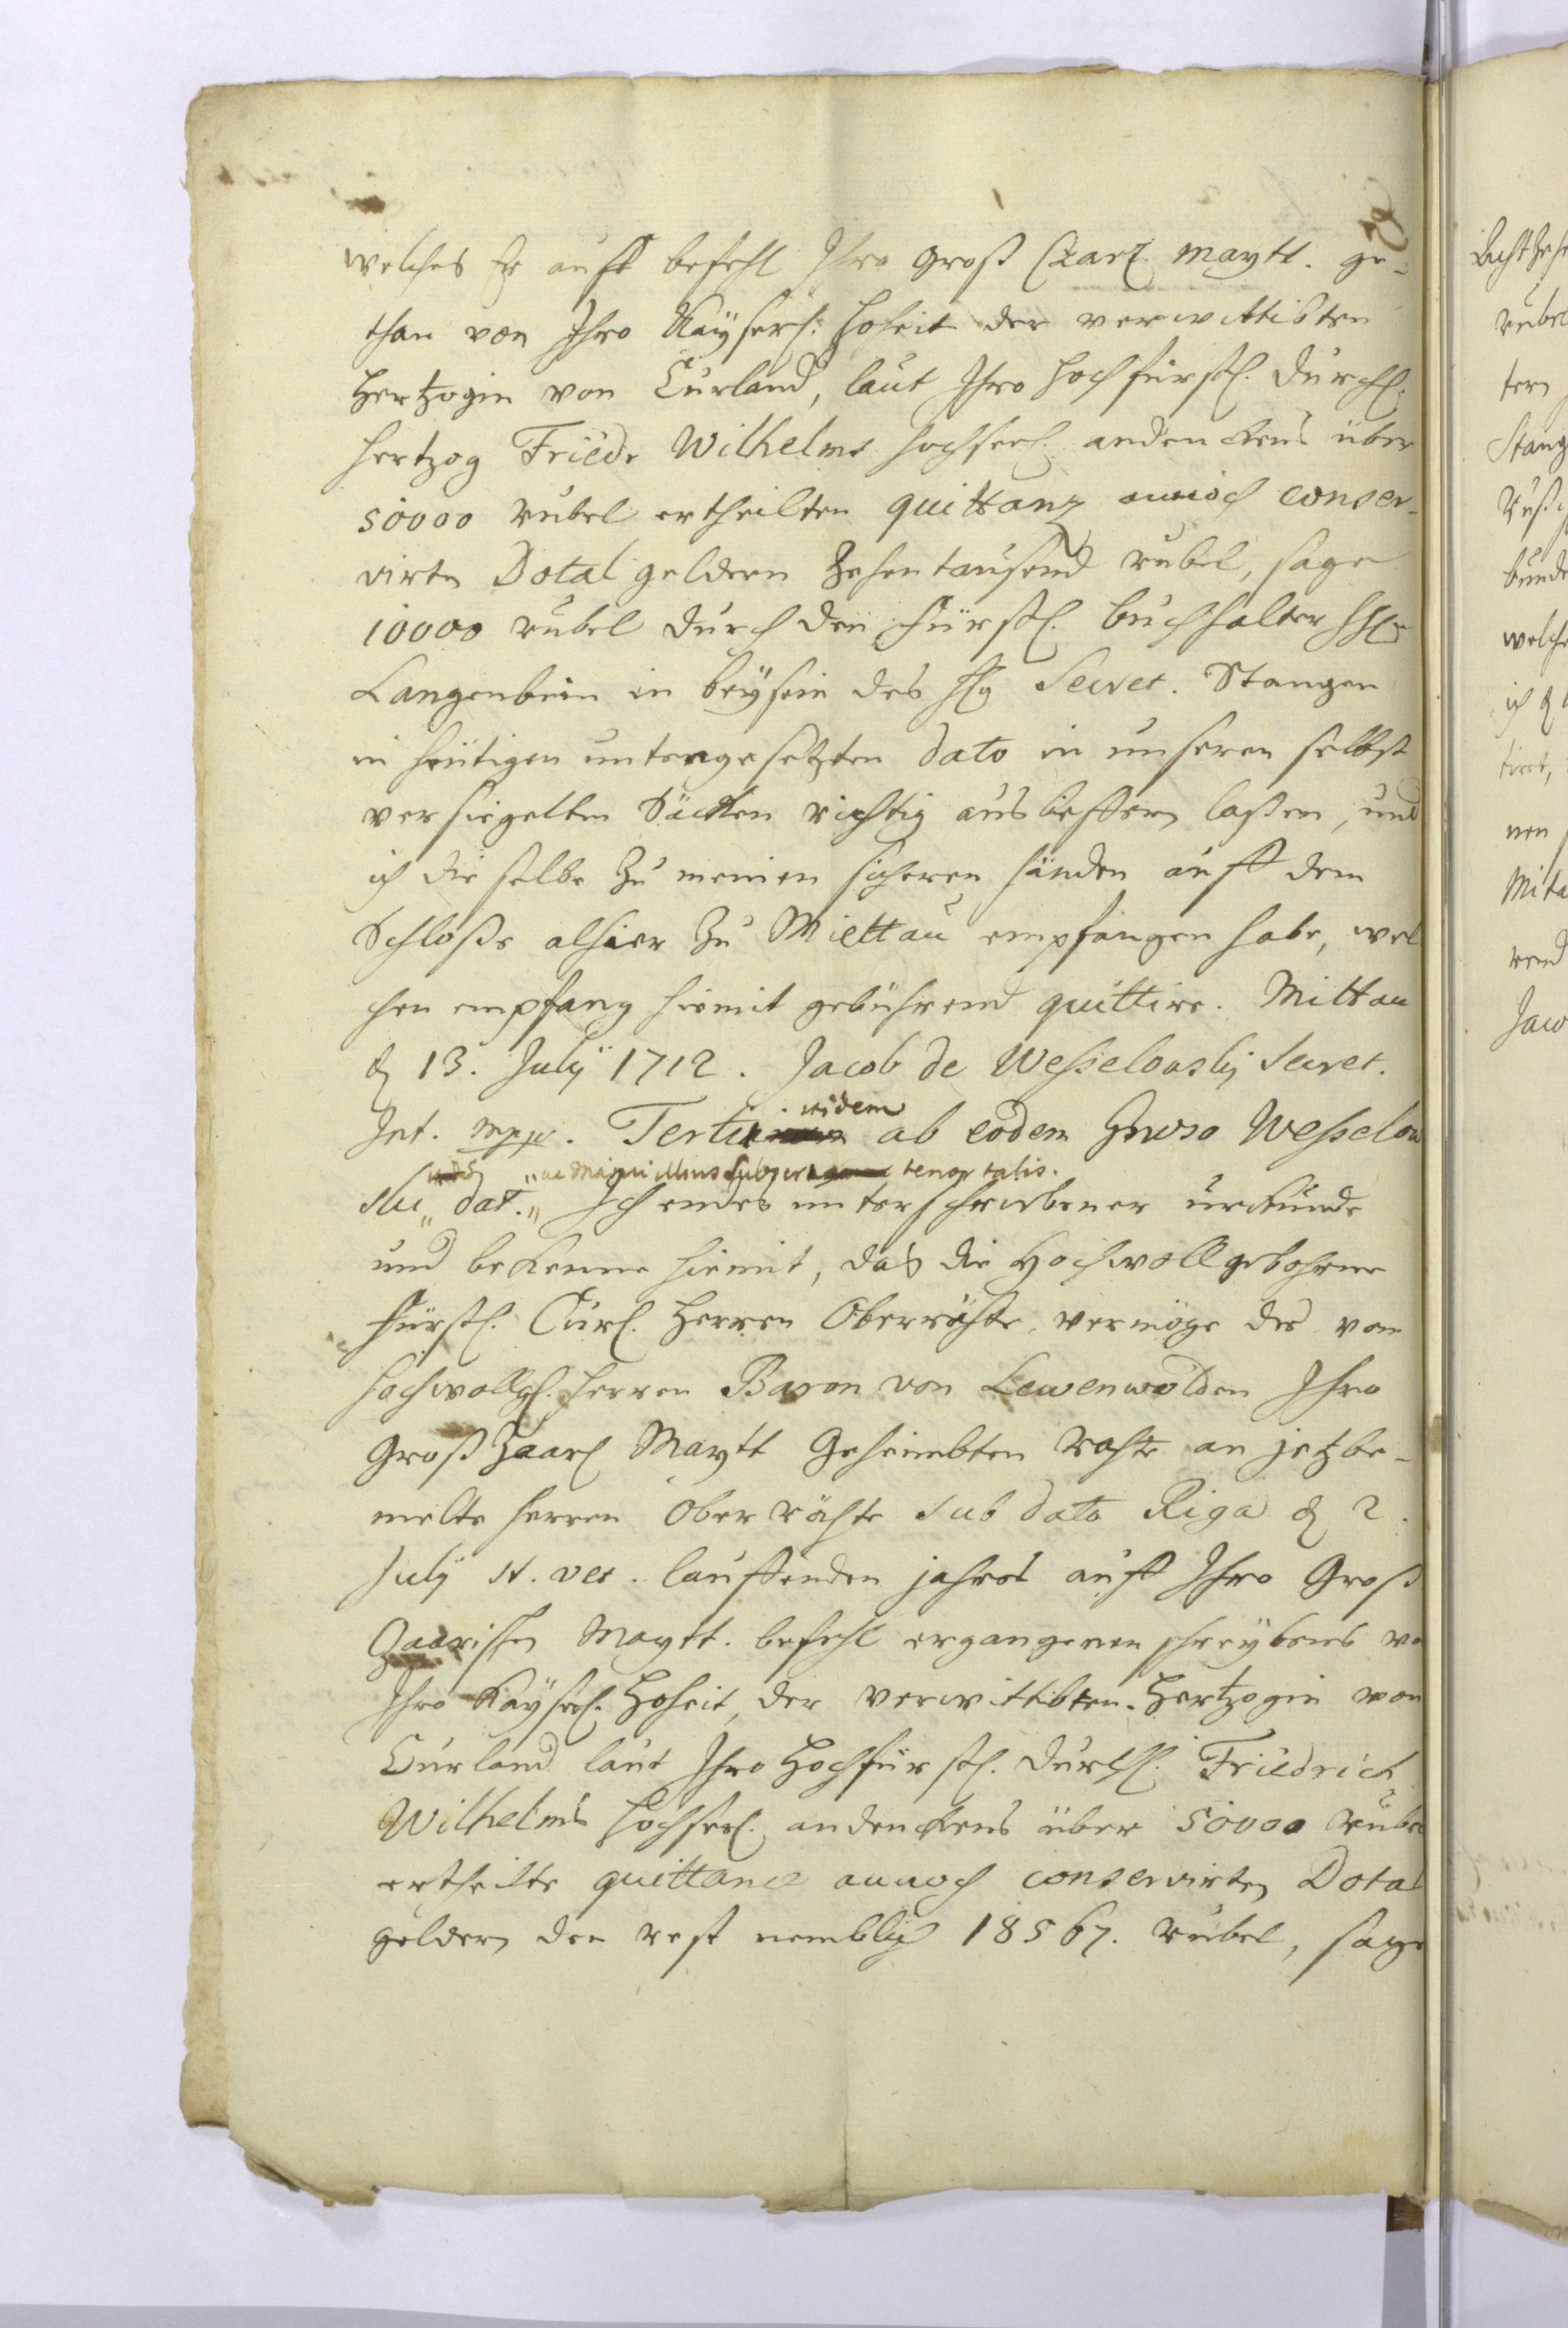 welches Er auff befehl Ihro Groß Czarl. Maytt. ge-
than von Ihro Kayserl. Hoheit der verwittibten
Hertzogin von Curland, laut Ihro Hochfürstl. Durchl.
Hertzog Friedr Wilhelms hochseel. andenckens über
50000 rubel ertheilten quittanz annoch conser-
virten Dotal geldern Zehentausend rubel, sage
10000 rubel durch den Fürstl. buchhalter
Langenbein in beysein des Secret. Stangen
in heütigen untengesetzten dato in unseren selbst
versiegelten Säcken richtig ausliefern laßen, und
ich dieselbe zu meinen sicheren händen auff dem
Schloße alhier zu Miettau empfangen habe, wel
chen empfang hiemit gebührend quittire. Mittau
d 13. July 1712. Jacob de Wesselowsky Secret.
Int. mpp. ab eodem Gnroso Wesselow
itidem
sky dat. Ich endes unterschriebener urkunde
tenor talis.
und bekenne hiemit, das die Hochwollgebohrne
Fürstl. Curl. Herren Oberräthe, vermöge des vom
Hochwollgb. Herren Baron von Lewenwolden Ihro
Groß Zaarl Maytt Geheimbten Rahte an jetzbe-
melte Herren Ober räthe sub dato Riga d 2.
July st. vet. lauffenden jahres auff Ihro Groß
Zaarischen Maytt. befehl ergangenen schreybens vo
Ihro Kayserl. Hoheit, der verwittibten Hertzogin von
Curland laut Ihro Hochfürstl. Durchl. Friedrich
Wilhelms Hochseel. andenckens über 50000 Rubel
ertheilte quittance annoch conservirten Dotal
geldern den rest nemblich 18567. rubel, sage